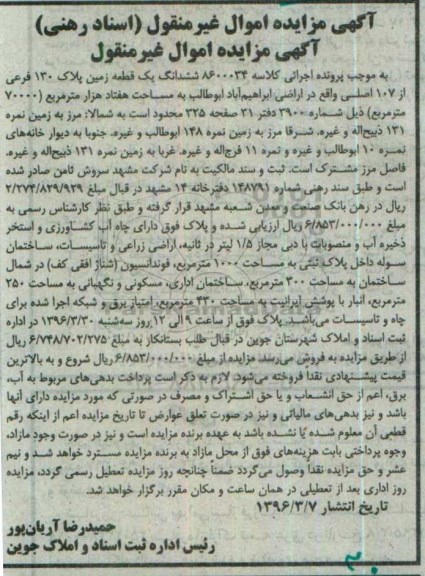 آگهی مزایده اموال غیرمنقول (اسناد رهنی)
آگهی مزایده اموال غیرمنقول
به موجب پرونده اجرائی کلاسه ۸۶۰۰۰۳۴ ششدانگ یک قطعه زمین پلاک ۱۳۰ فرعی
از ۱۰۷ اصلی واقع در اراضی ابراهیم‌آباد ابوطالب به مساحت هفتاد هزار مترمربع (۷۰۰۰۰
مترمربع) ذیل شماره ۳۹۰۰ دفتر ۳۱ صفحه ۳۲۵ محدود است به شمالا: مرز به زمین نمره
۱۳۱ ذبیح‌اله و غیره. شرقا مرز به زمین نمره ۱۴۸ ابوطالب و غیره. جنوبا به دیوار خانه‌های
نمره ۱۰ ابوطالب و غیره و نمره ۱۱ فرج‌اله و غیره. غربا به زمین نمره ۱۳۱ ذبیح‌اله و غیره.
فاصل مرز مشترک است. ثبت و سند مالکیت به نام شرکت مشهد سروش ثامن صادر شده
است و طبق سند رهنی شماره ۱۴۸۷۹۱ دفترخانه ۱۴ مشهد در قبال مبلغ ۲/۲۷۴/۸۲۹/۹۲۹
ریال در رهن بانک صنعت و معدن شعبه مشهد قرار گرفته و طبق نظر کارشناس رسمی به
مبلغ ۶/۸۵۳/۰۰۰/۰۰۰ ریال ارزیابی شده و پلاک فوق دارای چاه آب کشاورزی و استخر
ذخیره آب و منصوبات با دبی مجاز ۱/۵ لیتر در ثانیه، اراضی زراعی و تاسیسات، ساختمان
سوله داخل پلاک ثبتی به مساحت ۱۰۰۰ مترمربع، فونداسیون (شناژ افقی کف) در شمال
ساختمان به مساحت ۴۰۰ مترمربع، ساختمان اداری، مسکونی و نگهبانی به مساحت ۲۵۰
مترمربع، انبار با پوشش ایرانیت به مساحت ۴۳۰ مترمربع، امتیاز برق و شبکه اجرا شده برای
چاه و تاسیسات می‌باشد. پلاک فوق از ساعت ۹ الی ۱۲ روز سه‌شنبه ۱۳۹۶/۳/۳۰ در اداره
ثبت اسناد و املاک شهرستان جوین در قبال طلب بستانکار به مبلغ ۶/۷۴۸/۷۰۲/۲۷۵ ریال
از طریق مزایده به فروش می‌رسد مزایده از مبلغ ۶/۸۵۳/۰۰۰/۰۰۰ ریال شروع و به بالاترین
قیمت پیشنهادی نقدا فروخته می‌شود. لازم به ذکر است پرداخت بدهی‌های مربوط به آب،
برق، اعم از حق انشعاب و یا حق اشتراک و مصرف در صورتی که مورد مزایده دارای آنها
باشد و نیز بدهی‌های مالیاتی و نیز در صورت تعلق عوارض تا تاریخ مزایده اعم از اینکه رقم
قطعی آن معلوم شده یا نشده باشد به عهده برنده مزایده است و نیز در صورت وجود مازاد،
وجوه پرداختی بابت هزینه‌های فوق از محل مازاد به برنده مزایده مسترد خواهد شد و نیم
عشر و حق مزایده نقدا وصول می‌گردد ضمنا چنانچه روز مزایده تعطیل رسمی گردد، مزایده
روز اداری بعد از تعطیلی در همان ساعت و مکان مقرر برگزار خواهد شد.
تاریخ انتشار ۱۳۹۶/۳/۷
حمیدرضا آریان‌پور
رئیس اداره ثبت اسناد و املاک جوین